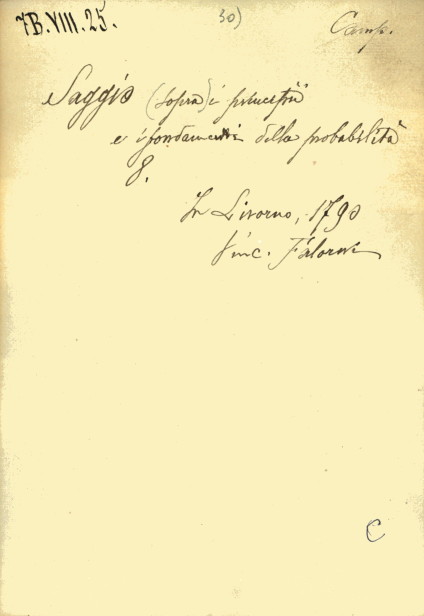 7B.VIII.25.
30)
Camp.
Saggio (sopra) i principii
e i fondamenti della probabilità
8.
In Livorno, 1790
Vinc. Falorni
C